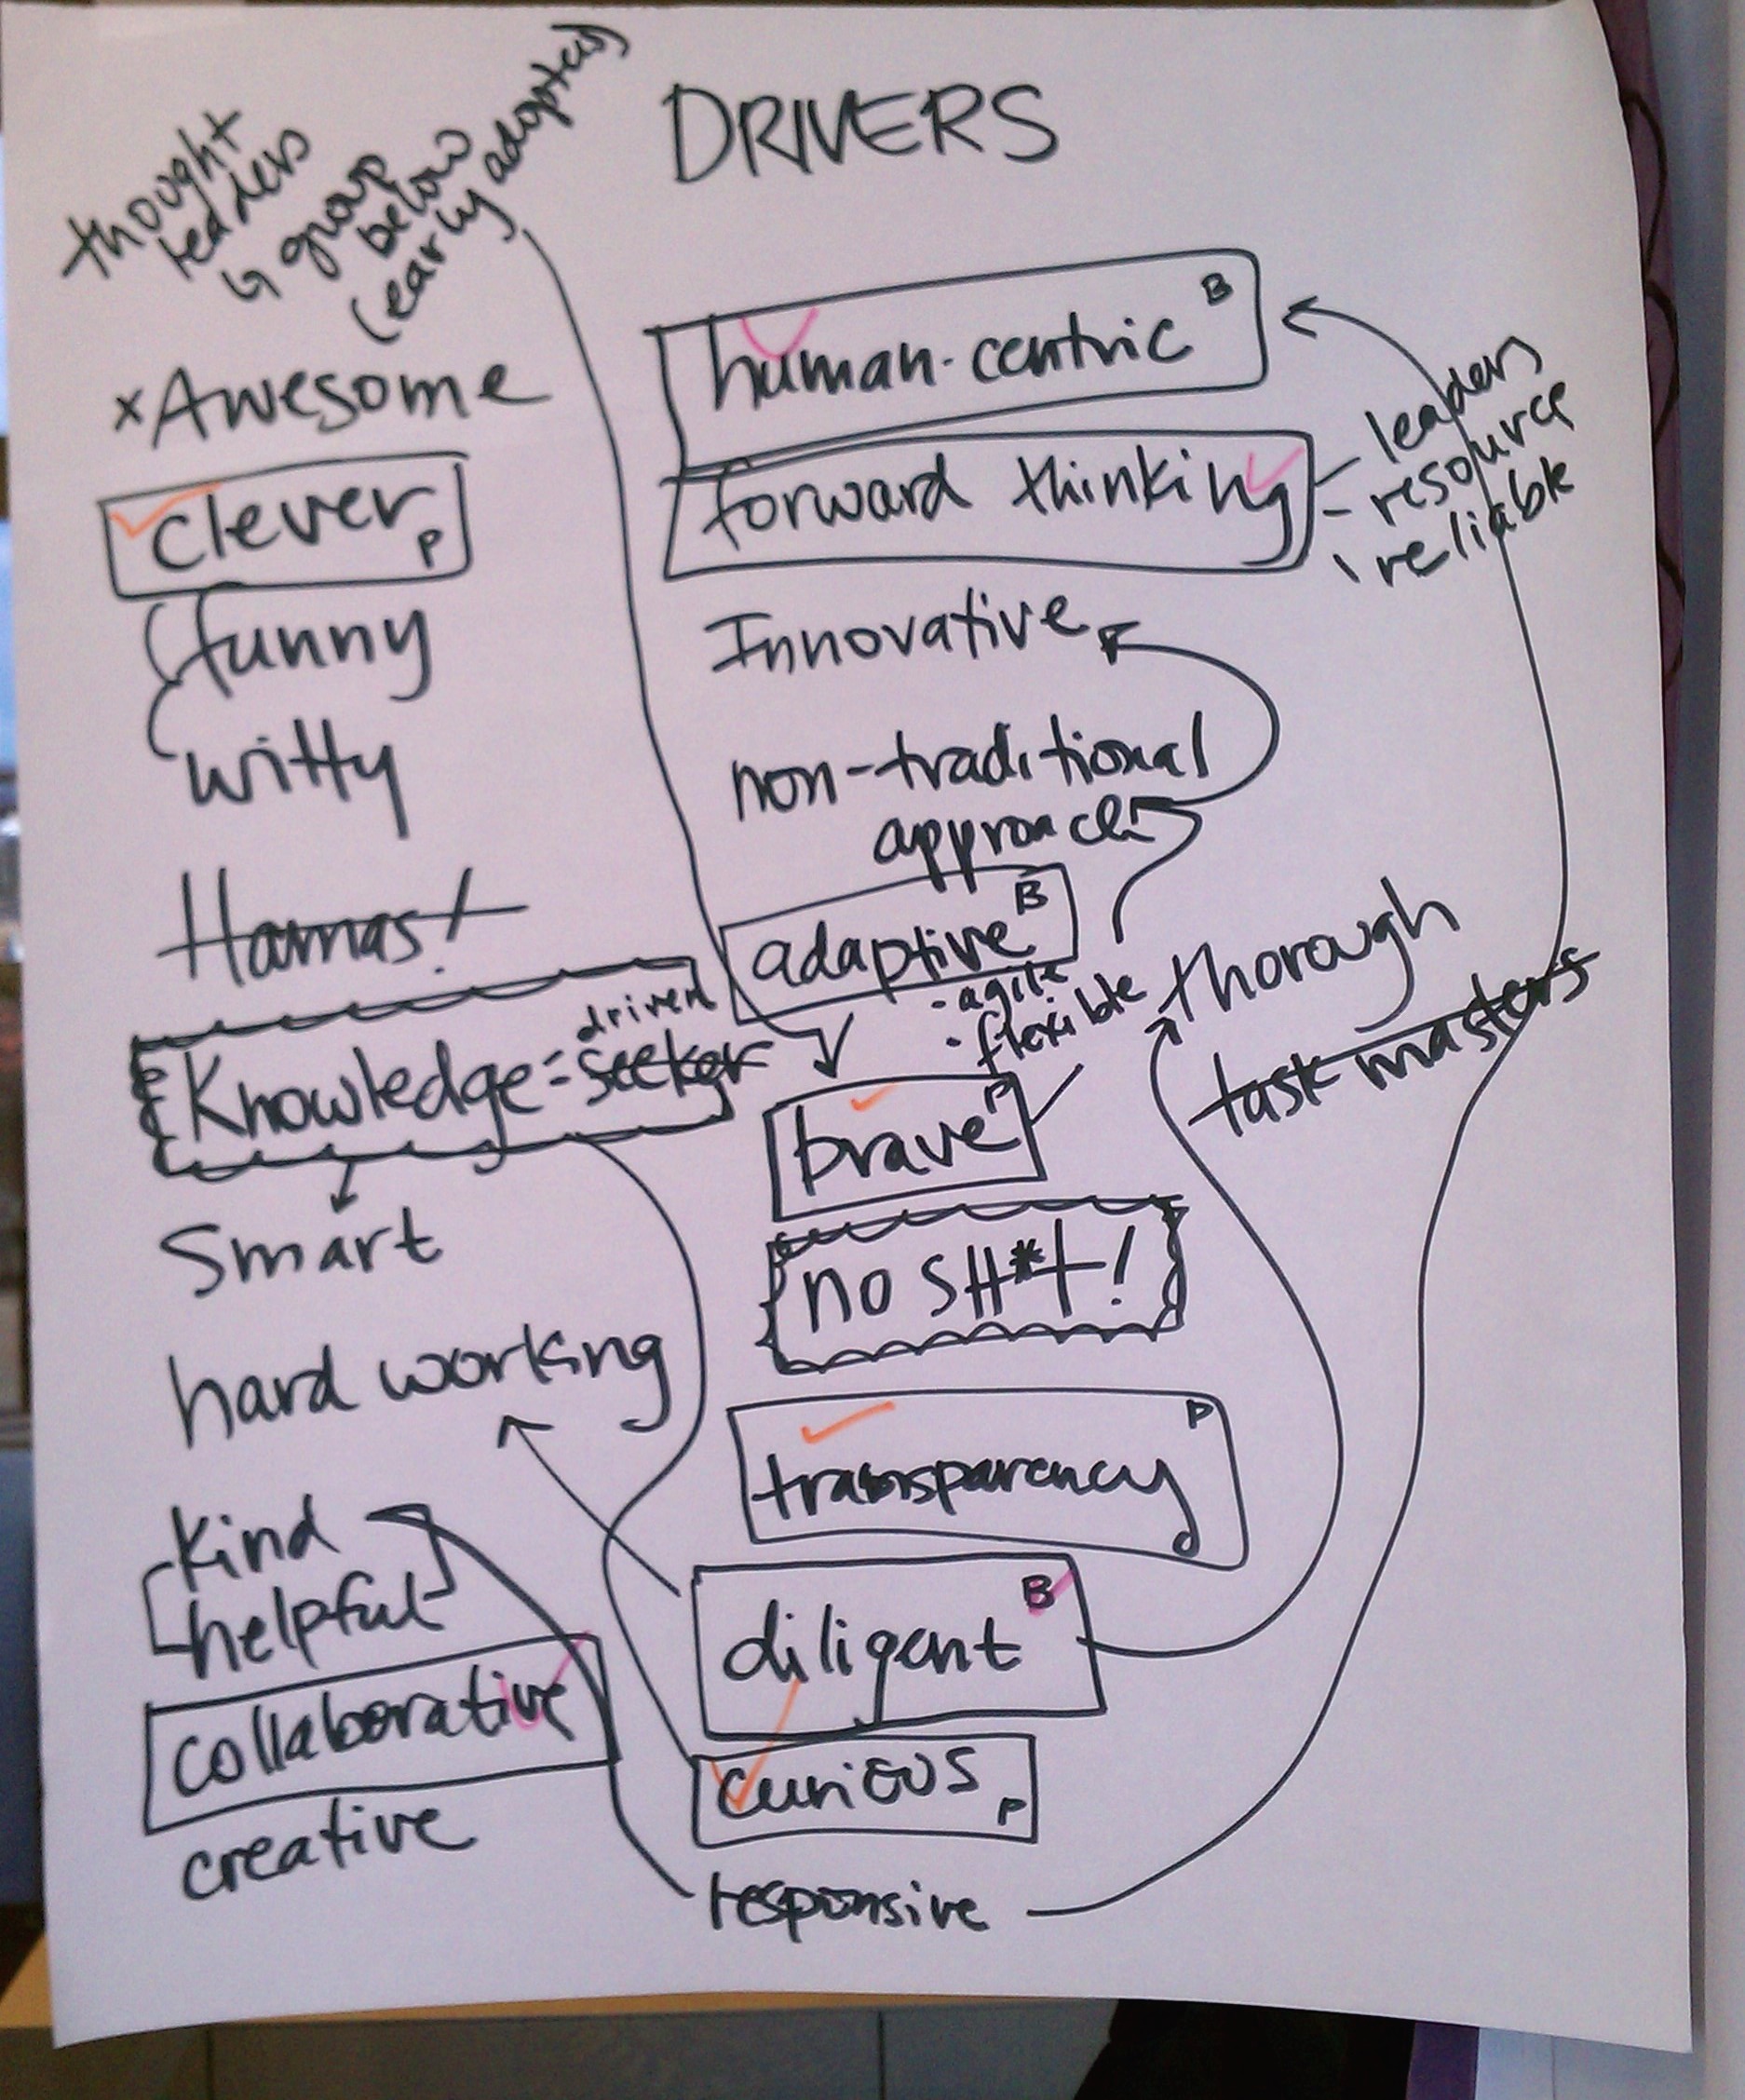 DRIVERS
thought
leaders
↳ group
below
(early adopters)
×Awesome
clever P
funny
witty
Knowledge = seeker
driven
Smart
hard working
kind
helpful
collaborative
creative
human-centric B
forward thinking
- leaders
- resource
- reliable
Innovative
non-traditional
approach
adaptive B
- agile
- flexible
thorough
task masters
brave P
no SH*t!
transparency P
diligent B
curious P
responsive